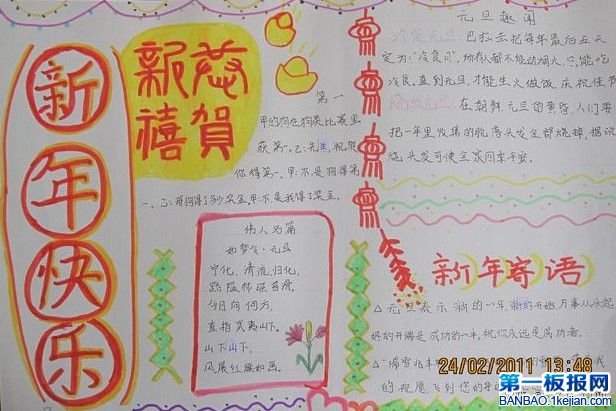 新年快乐
恭
新
賀
禧
第一
甲的狗在狗类比赛里
获第一。乙:先生,祝贺
你得第一。甲:不是狗得第
一、乙:那狗得了多少奖金。甲:不是我得了奖金。
伟人为篇
如梦令·元旦
宁化、清流、归化,
路隘林深苔滑。
今日向何方,
直指武夷山下。
山下山下,
风展红旗如画。
元旦趣闻
冷食元旦 巴拉圭把每年最后五天
定为"冷食日",所有人都不能动烟火,只能吃
冷食。直到元旦,才能生火做饭,庆祝佳节
烧发元旦 在朝鲜元旦的黄昏,人们要
把一年里收集的脱落头发全部烧掉,据说
烧头发可使全家四季平安。
新年寄语
△元旦表示新的一年,新的开始万事从头起
好的开端是成功的一半,祝你永远是成功者。
△"瑞雪兆丰
的祝愿飞到您的身
24/02/2011 13:48
第一板报网
BANBAO.1kejian.com/